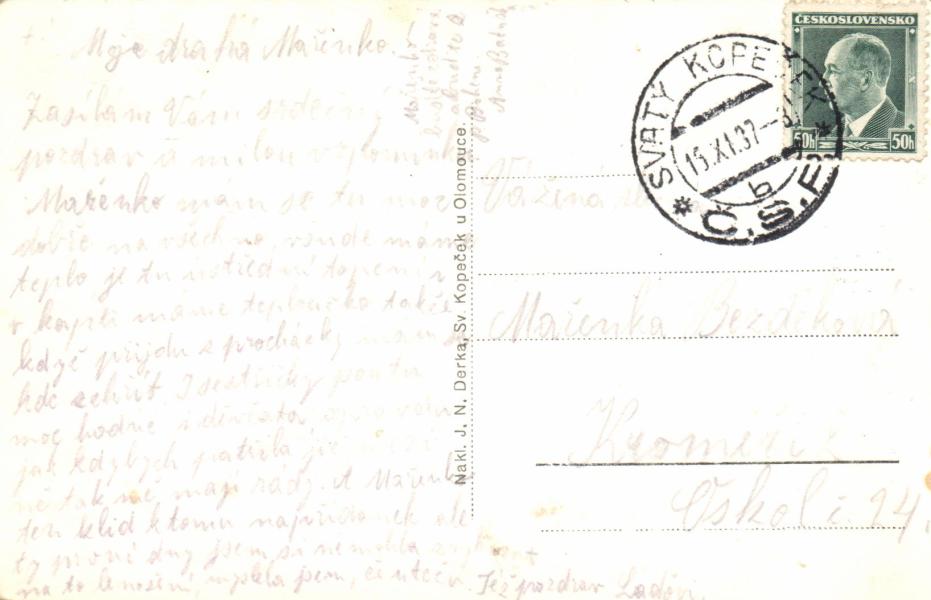 Moje drahá Mařenko!
Zasílám Vám srdečný
pozdrav a milou vzpomínku.
Mařenko mám se tu moc
dobře na všechno, všude máme
teplo je tu ustřední topení i
v kapli máme teploučko takže
když přijdu z procházky mám se
kde zehřít. I sestřičky jsou tu
moc hodné i děvčata,
jak kdybych patřila
mě tak mají rády. A Mařenko
ten klid k tomu napřídavek ale
ty první dny jsem si nemohla zvyknout
na to lenošení, myslela jsem, či uteču. Též pozdrav Laďovi.
Mařenko
buďte zdráva
Anna
Nakl. J. N. Derka, Sv. Kopeček u Olomouce.
ČESKOSLOVENSKO
50h 50h
SVATÝ KOPEČEK
15.XI.37
b
Č.S.R.
Vážená
Mařenka Bezděková
Kroměříž
Oskol č. 24.